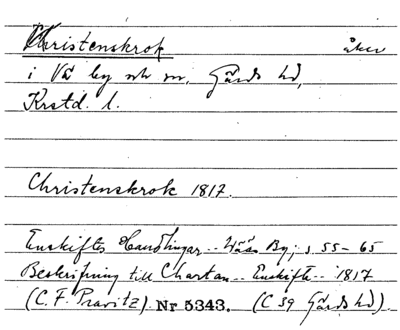 Christenskrok åker
i Vä by ok sn, Gärds hd,
Krstd. l.
Christenskrok 1817.
Enskiftes Handlingar -- Wääs By; s 55-65
Beskrifning till Chartan -- Enskifte -- 1817
(C. F. Pravitz) Nr 5343. (C 59 Gärds hd).